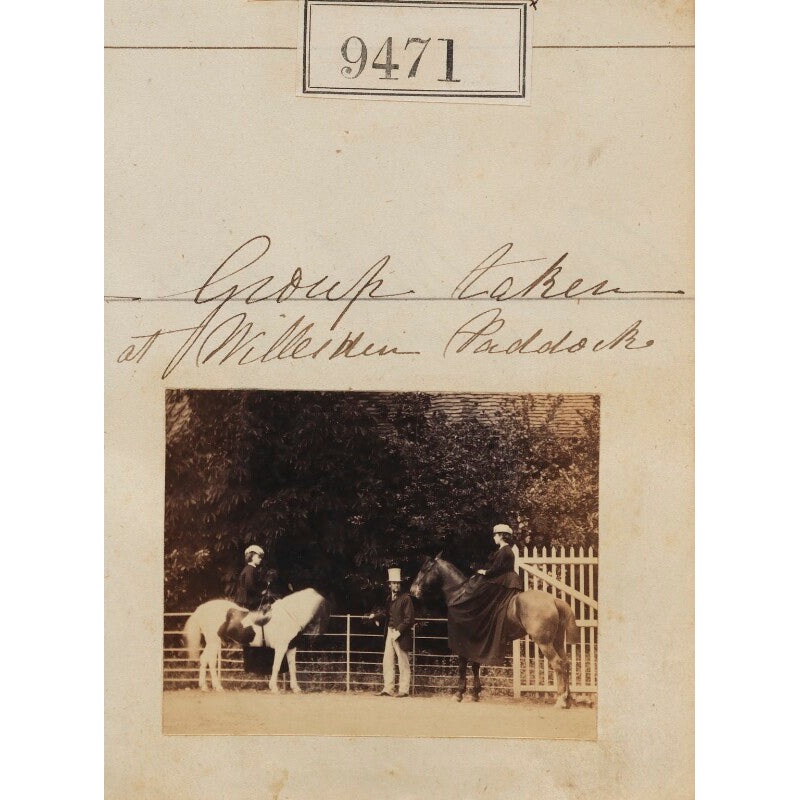 9471
Group taken
at Willesden Paddock